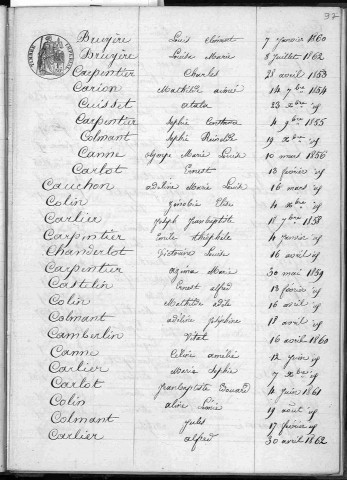 37
Bruyère Louis Clément 7 janvier 1860
Bruyère Louise Marie 8 juillet 1862
Carpentier Charles 28 avril 1853
Carion Mathilde aimée 14 7bre 1854
Cuisset atala 23 xbre id
Carpentier Sophie 4 9bre 1855
Colmant Sophie 19 xbre id
Canne olympe Marie Louise 10 mars 1856
Carlot Ernest 13 février id
Cauchon adeline Marie Louise 16 mars id
Colin Zénobie Elise 4 xbre id
Carlier Joseph Jeanbaptiste 18 7bre 1858
Carpentier Emile théophile 4 janvier id
Chanderlot Victorine Louise 16 avril id
Carpentier azéma Marie 30 mai 1859
Castelin Ernest alfred 13 février id
Colin Mathilde adèle 16 avril id
Colmant adéline joséphine 13 avril id
Camberlin Vital 16 avril 1860
Canne Céline amélie 12 juin id
Carlier Marie Sophie 7 xbre id
Carlot jeanbaptiste Edouard 4 juin 1861
Colin aline 19 août id
Colmant jules 17 février id
Carlier alfred 30 avril 1862